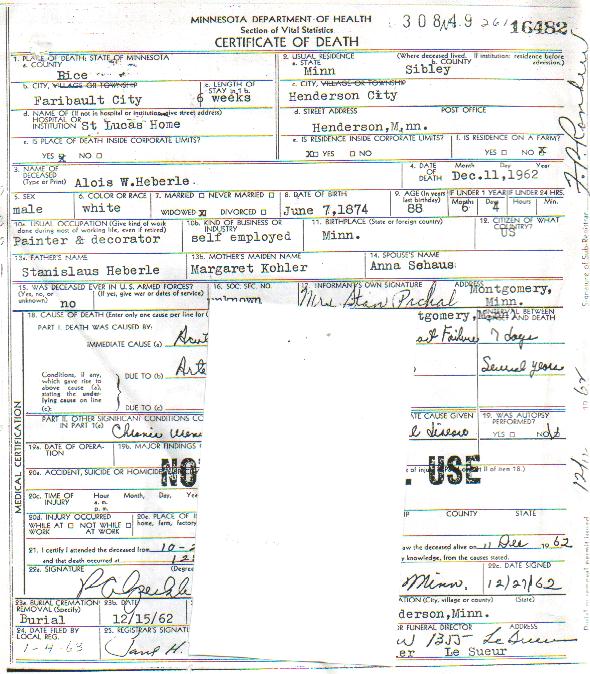 MINNESOTA DEPARTMENT OF HEALTH
Section of Vital Statistics
CERTIFICATE OF DEATH
16482
1. PLACE OF DEATH: STATE OF MINNESOTA
a. COUNTY
Rice
2. USUAL RESIDENCE (Where deceased lived. If institution: residence before admission.)
a. STATE b. COUNTY
Minn Sibley
b. CITY, VILLAGE OR TOWNSHIP
Faribault City
c. LENGTH OF STAY in 1 b.
6 weeks
c. CITY, VILLAGE OR TOWNSHIP
Henderson City
d. NAME OF (If not in hospital or institution, give street address)
HOSPITAL OR INSTITUTION
St Lucas Home
d. STREET ADDRESS POST OFFICE
Henderson, Minn.
e. IS PLACE OF DEATH INSIDE CORPORATE LIMITS?
YES X NO
e. IS RESIDENCE INSIDE CORPORATE LIMITS?
X YES NO
f. IS RESIDENCE ON A FARM?
YES NO X
3. NAME OF DECEASED
(Type or Print)
Alois W. Heberle
4. DATE OF DEATH Month Day Year
Dec. 11, 1962
5. SEX
male
6. COLOR OR RACE
white
7. MARRIED NEVER MARRIED
WIDOWED X DIVORCED
8. DATE OF BIRTH
June 7, 1874
9. AGE (In years last birthday)
88
IF UNDER 1 YEAR IF UNDER 24 HRS.
Months Days Hours Min.
6 4
10a. USUAL OCCUPATION (Give kind of work done during most of working life, even if retired)
Painter & decorator
10b. KIND OF BUSINESS OR INDUSTRY
self employed
11. BIRTHPLACE (State or foreign country)
Minn.
12. CITIZEN OF WHAT COUNTRY?
US
13a. FATHER'S NAME
Stanislaus Heberle
13b. MOTHER'S MAIDEN NAME
Margaret Kohler
14. SPOUSE'S NAME
Anna Sehaus
15. WAS DECEASED EVER IN U.S. ARMED FORCES?
(Yes, no, or unknown) (If yes, give war or dates of service)
no
16. SOC. SEC. NO.
unknown
17. INFORMANT'S OWN SIGNATURE ADDRESS
Mrs Stan Prchal Montgomery, Minn.
tgomery,
18. CAUSE OF DEATH (Enter only one cause per line for (
INTERVAL BETWEEN
AND DEATH
PART I. DEATH WAS CAUSED BY:
IMMEDIATE CAUSE (a)
Failure 7 days
Conditions, if any, which gave rise to above cause (a), stating the underlying cause on line (c):
DUE TO (b) Arte
Several years
DUE TO (c)
PART II. OTHER SIGNIFICANT CONDITIONS CO
IN PART 1(a)
Chronic
TE CAUSE GIVEN
19. WAS AUTOPSY PERFORMED?
YES NO X
MEDICAL CERTIFICATION
19a. DATE OF OPERATION
19b. MAJOR FINDINGS
NO
USE
20a. ACCIDENT, SUICIDE OR HOMICIDE
II of item 18.)
20c. TIME OF INJURY Hour Month, Day, Year
a. m.
p. m.
20d. INJURY OCCURRED
WHILE AT WORK NOT WHILE AT WORK
20e. PLACE OF I
home, farm, factory
COUNTY STATE
21. I certify I attended the deceased from 10-2
aw the deceased alive on 11 Dec 1962
and that death occurred at
y knowledge, from the causes stated.
22a. SIGNATURE (Degree
Minn.
22c. DATE SIGNED
12/27/62
23a. BURIAL CREMATION REMOVAL (Specify)
Burial
23b. DATE
12/15/62
ATION (City, village or county) (State)
derson, Minn.
24. DATE FILED BY LOCAL REG.
1-4-63
25. REGISTRAR'S SIGNATU
Jane H.
R FUNERAL DIRECTOR ADDRESS
Le Sueur
er Le Sueur
Signature of Sub-Registrar